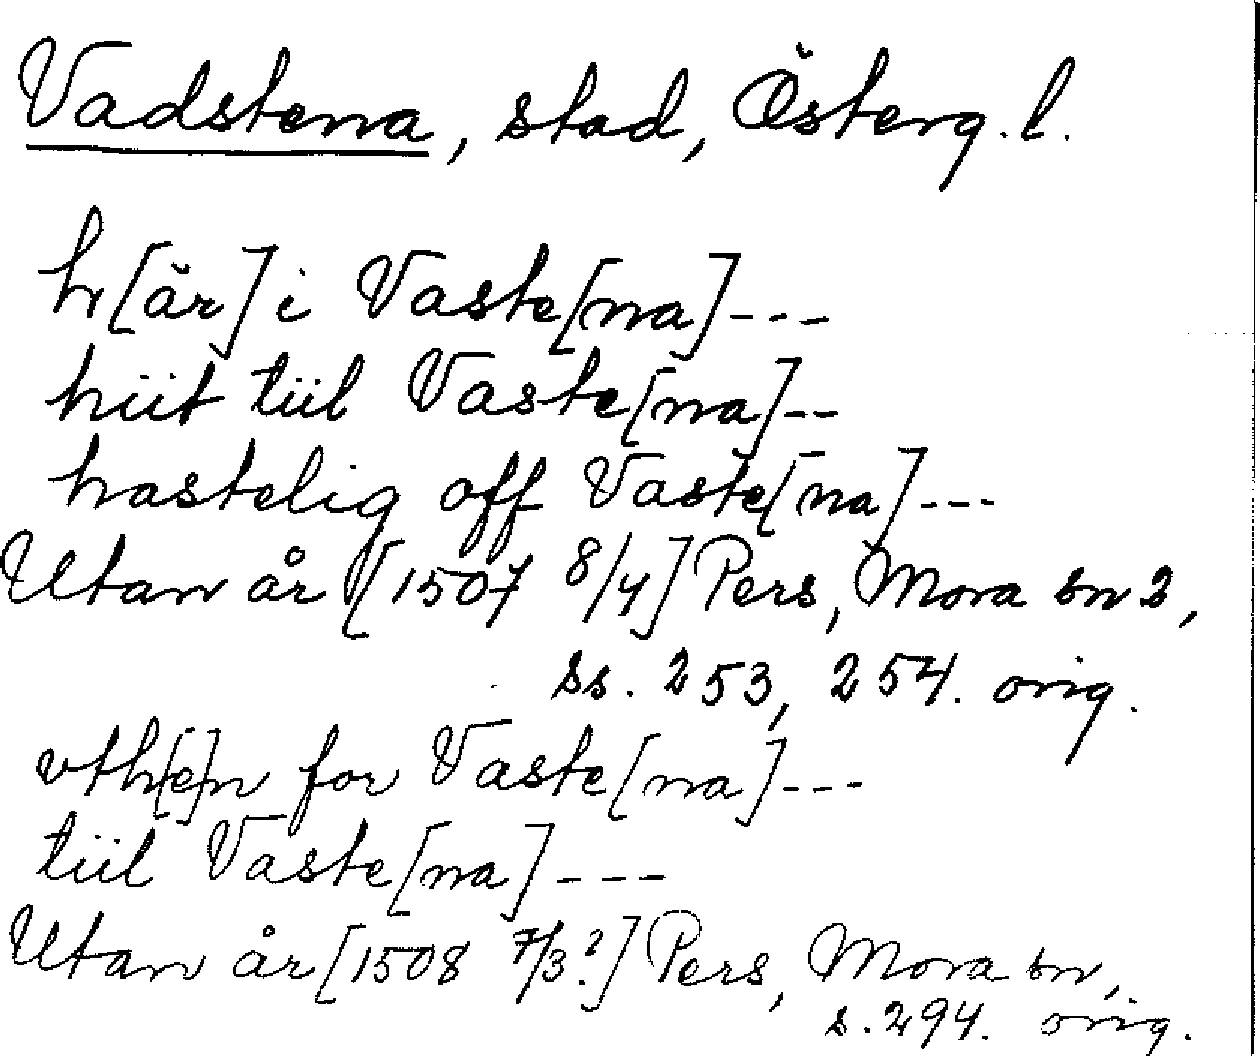 Vadstena, stad, Österg. l.
h[är] i Vaste[na]---
hiit tiil Vaste[na]--
hastelig off Vaste[na]---
Utan år [1507 8/4] Pers, Mora sn 2,
ss. 253, 254. orig.
vth[e]n for Vaste[na]---
tiil Vaste[na]---
Utan år [1508 7/3?] Pers, Mora sn,
s. 294. orig.